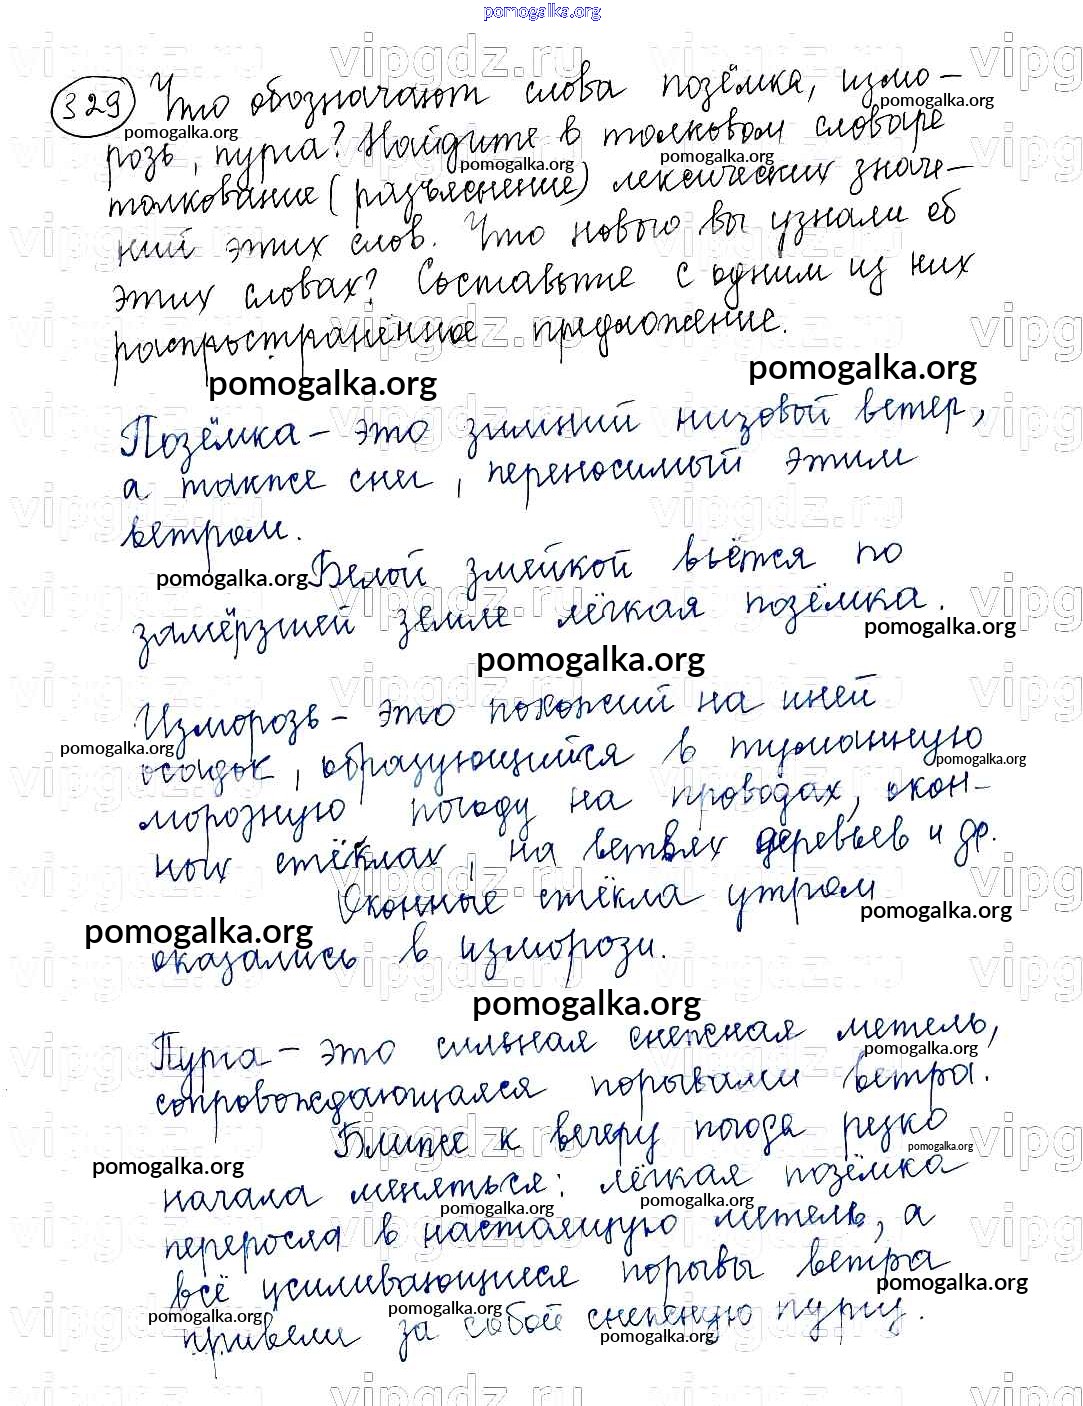 pomogalka.org
329 Что обозначают слова позёмка, измо-
розь, пурга? Найдите в толковом словаре
толкование (разъяснение) лексических значе-
ний этих слов. Что нового вы узнали об
этих словах? Составьте с одним из них
распространённое предложение.
pomogalka.org pomogalka.org
Позёмка – это зимний низовой ветер,
а также снег, переносимый этим
ветром.
Белой змейкой вьётся по
замёрзшей земле лёгкая позёмка.
pomogalka.org
Изморозь – это похожий на иней
осадок, образующийся в туманную
морозную погоду на проводах, окон-
ных стёклах, на ветвях деревьев и др.
Оконные стёкла утром
оказались в изморози.
pomogalka.org
Пурга – это сильная снежная метель,
сопровождающаяся порывами ветра.
Ближе к вечеру погода резко
начала меняться: лёгкая позёмка
переросла в настоящую метель, а
всё усиливающиеся порывы ветра
привели за собой снежную пургу.